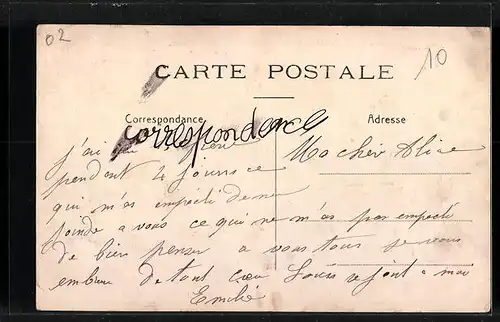 02
10
CARTE POSTALE
Correspondance
Adresse
Correspondence
j'ai
pendant 4 jours ce
Ma cher Alice
qui m'as empeché de me
joindre a vous ce qui ne m'as pas empeché
de bien penser a vous tous je vous
embrasse de tout cœur Louis se joint a moi
Emilie